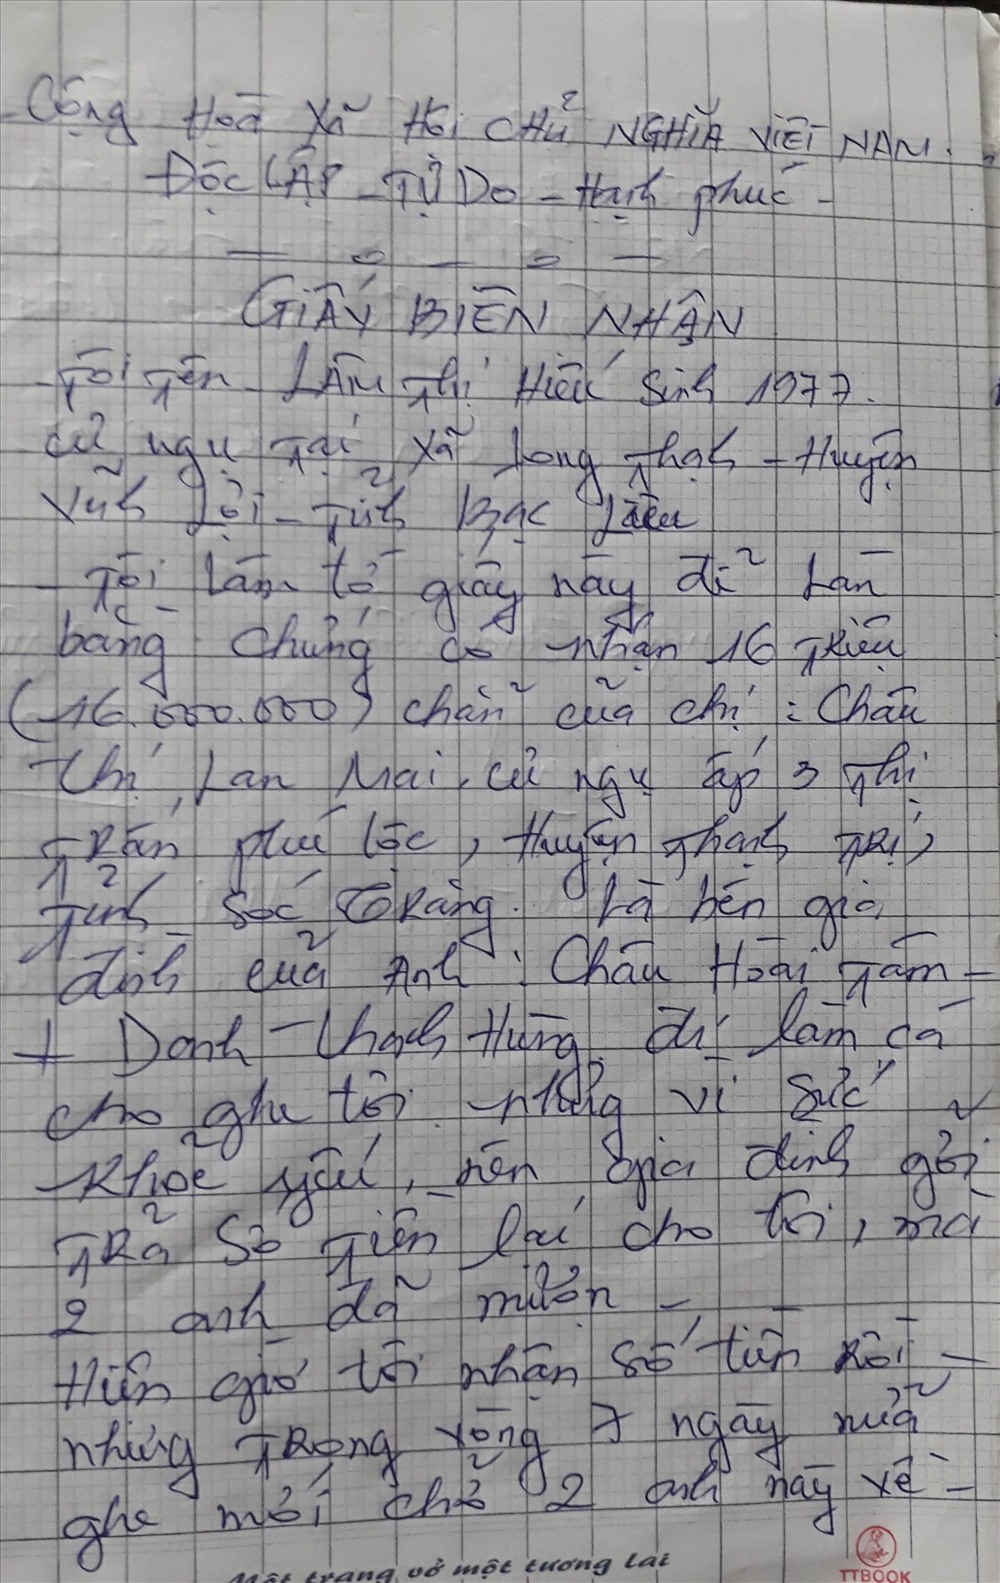 Cộng Hoà Xã Hội CHủ NGHĨA VIỆT NAM.
ĐộC LẬP - Tự Do - Hạnh phúc -
— o — o —
GIẤY BIÊN NHẬN
- Tôi tên LÂM Thị Hiếu sinh 1977.
cư ngụ tại xã Long Thạnh - Huyện
Vĩnh Lợi - Tỉnh Bạc Liêu
- Tôi Làm tờ giấy này để Làn
bằng chứng có nhận 16 Triệu
(16.000.000) chẳn của chị : Châu
thị Lan Mai, cư ngụ ấp 3 Thị
TRấn phú lộc, Huyện Thạnh TRị,
Tỉnh Sóc TRăng. Là bên gia
đình của Anh : Châu Hoài Tâm -
+ Danh Thạch Hùng. đi làm cá
cho ghe tôi nhưng vì sức
khoẻ yếu, nên gia đình gởi
TRả Số Tiền lại cho tôi, mà
2 anh đã mượn -
Hiện giờ tôi nhận số tiền Rồi -
nhưng TRong vòng 7 ngày nữa
ghe mới chở 2 anh này về -
Một trang vở một tương lai
TTBOOK